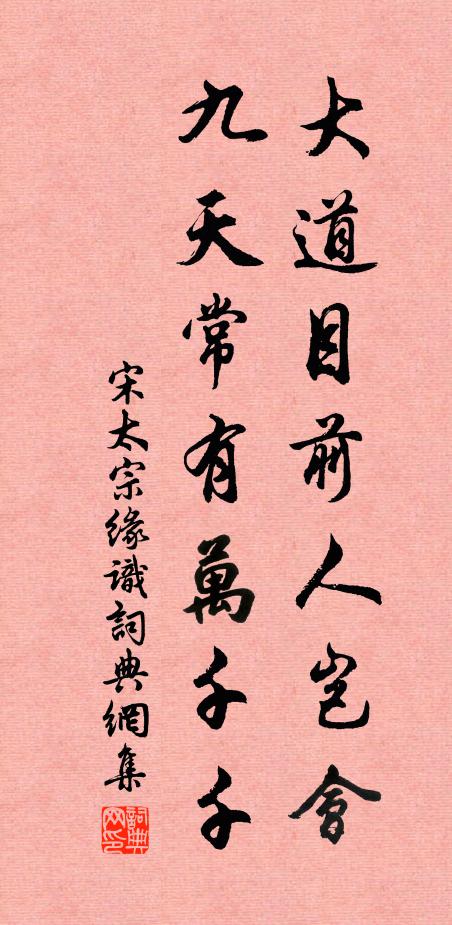 大道目前人岂會
九天常有萬千千
宋太宗緣識詞典網集
詞典网印